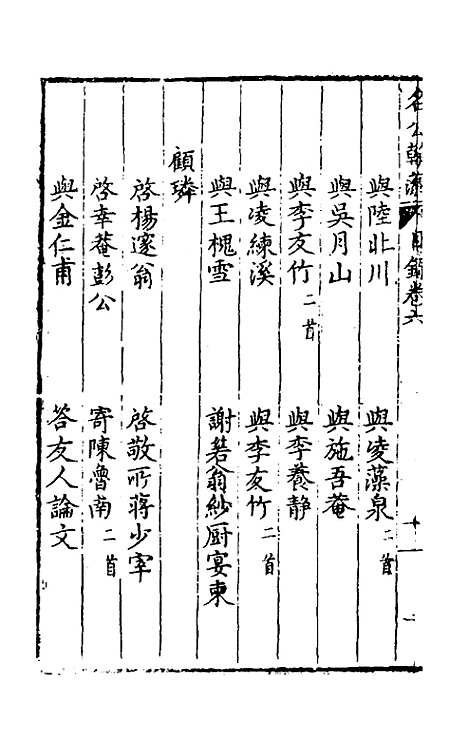 名公翰藻 目錄卷六
與陸北川 與凌藻泉二首
與吳月山 與施吾菴
與李友竹二首 與李養靜
與凌練溪 與李友竹二首
與王槐雪 謝箬翁紗厨宴柬
顧璘
啓楊邃翁 啓敬所蔣少宰
啓幸菴彭公 寄陳魯南二首
與金仁甫 答友人論文